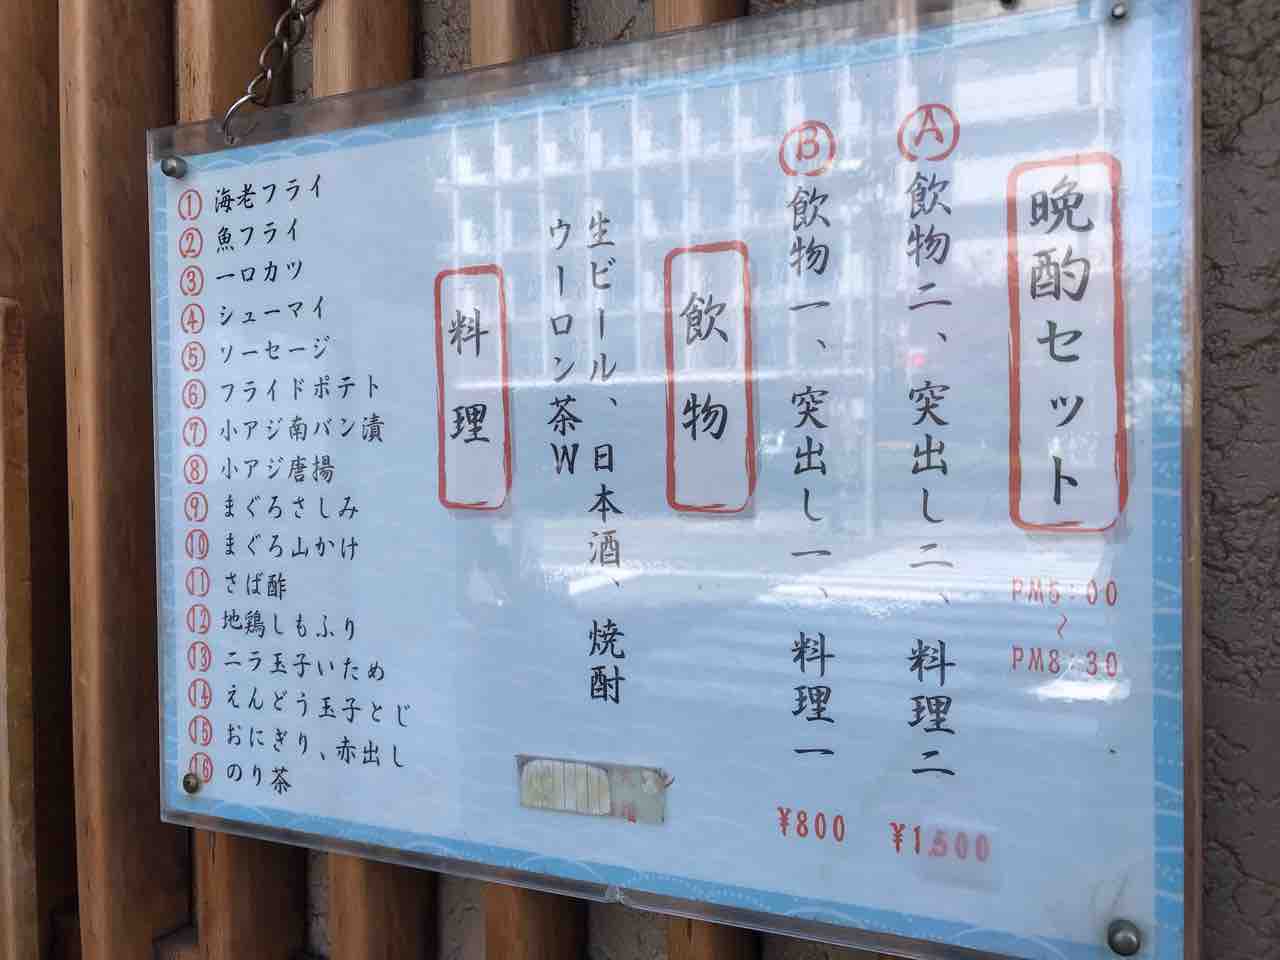 晩酌セット
PM5:00
~
PM8:30
Ⓐ飲物二、突出し二、料理二
¥1,500
Ⓑ飲物一、突出し一、料理一
¥800
飲物
生ビール、日本酒、焼酎
ウーロン茶W
料理
①海老フライ
②魚フライ
③一口カツ
④シューマイ
⑤ソーセージ
⑥フライドポテト
⑦小アジ南バン漬
⑧小アジ唐揚
⑨まぐろさしみ
⑩まぐろ山かけ
⑪さば酢
⑫地鶏しもふり
⑬ニラ玉子いため
⑭えんどう玉子とじ
⑮おにぎり、赤出し
⑯のり茶